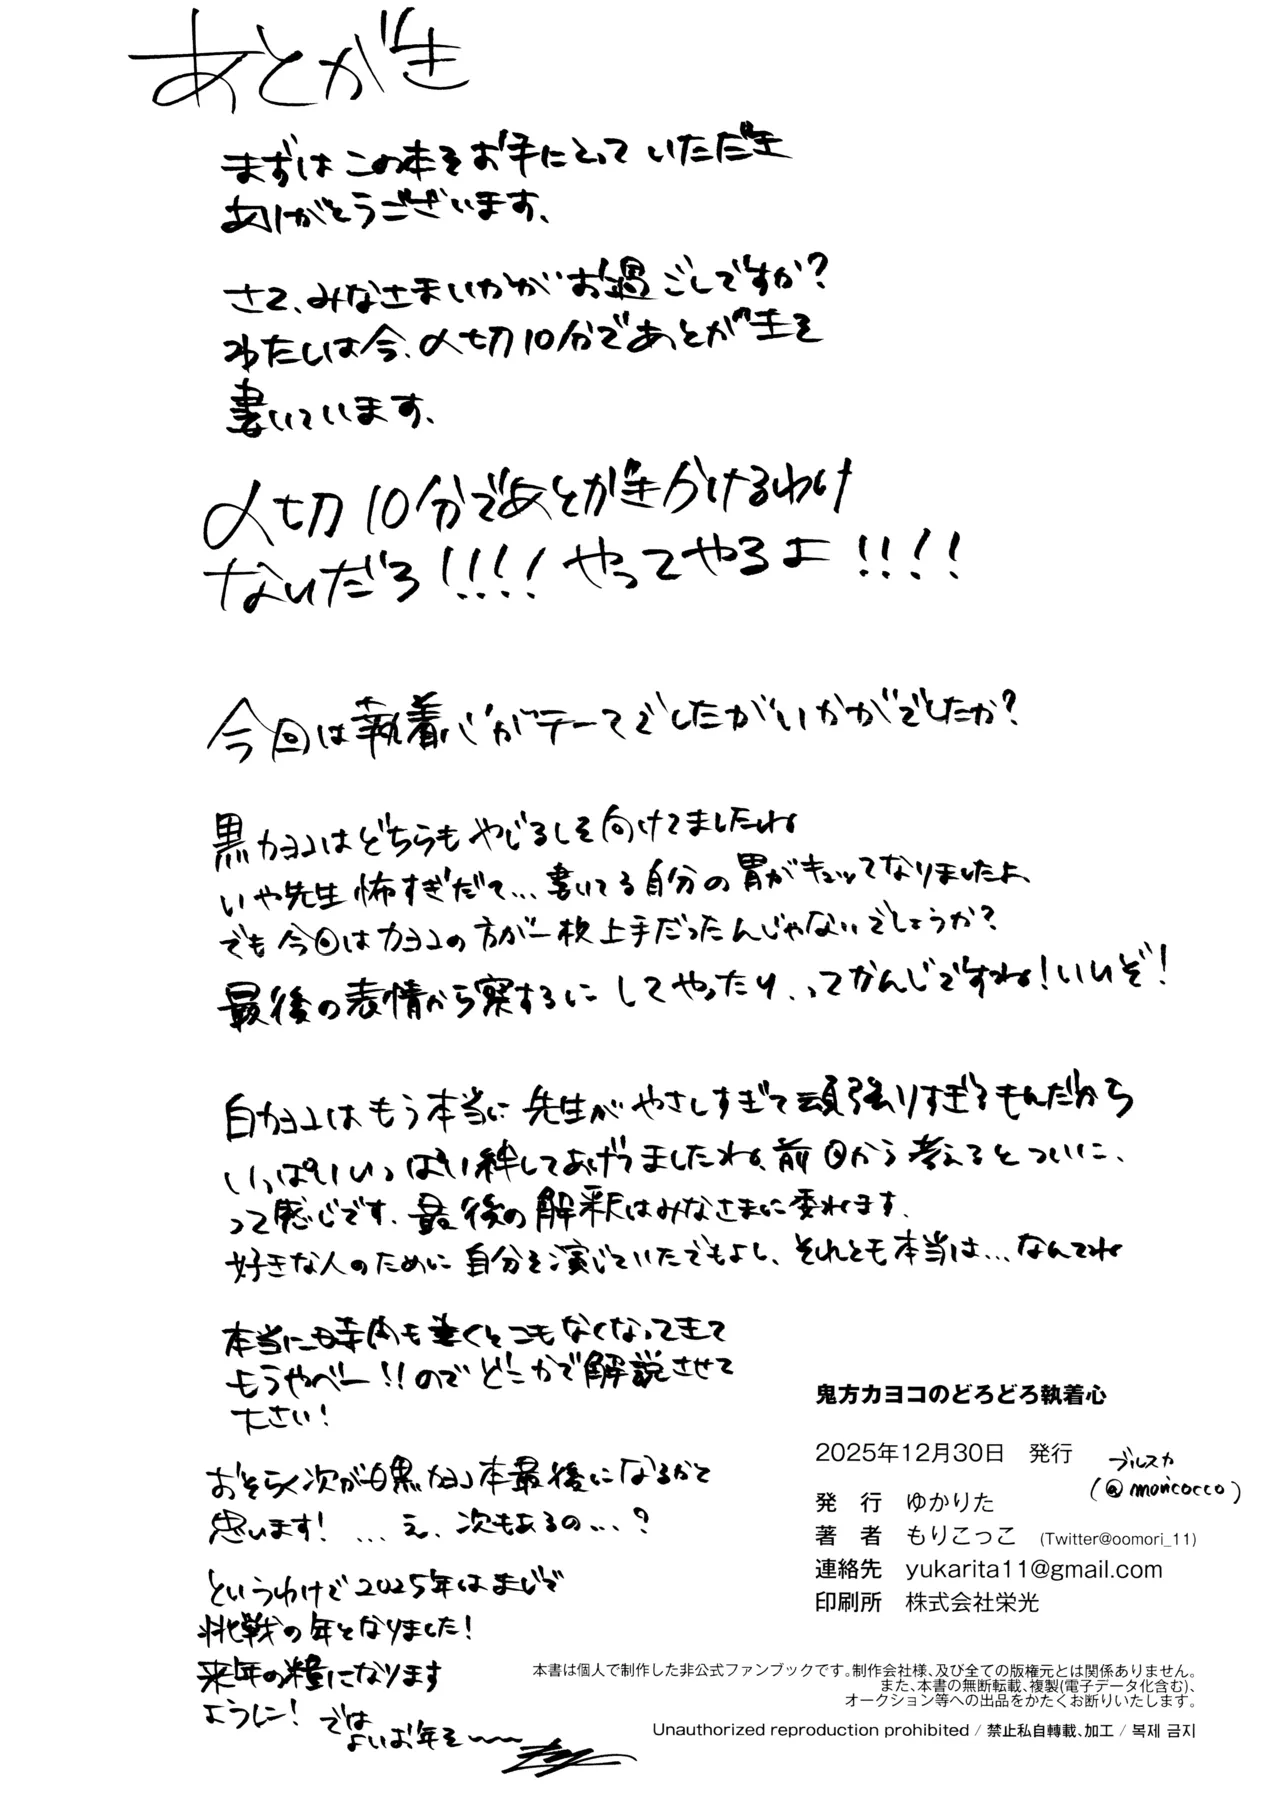 あとがき
まずはこの本をお手にとっていただき
ありがとうございます、
さて、みなさまいかがお過ごしですか?
わたしは今、〆切10分であとがきを
書いています、
〆切10分であとがきかけるわけ
ないだろ!!!! やってやるよ!!!!
今回は執着心がテーマでしたがいかがでしたか?
黒カヨコはどちらもやじるしを向けてましたね
いや先生怖すぎだて…書いてる自分の胃がキュッてなりましたよ、
でも今回はカヨコの方が一枚上手だったんじゃないでしょうか?
最後の表情から察するに してやったり、ってかんじですね!いいぞ!
白カヨコはもう本当に先生がやさしすぎて頑張りすぎるもんだから
いっぱいいっぱい絆してあげうましたね、前回から考えるとついに、
って感じです、最後の解釈はみなさまに委ねます、
好きな人のために自分を演じていたでもよし、それとも本当は…なんてね
本当に時間も書くとこもなくなってきて
もうやべー!!のでどこかで解説させて
下さい!
おそらく次が白黒カヨコ本最後になるかと
思います! …え、次もあるの…?
というわけで2025年はまじで
挑戦の年となりました!
来年の糧になります
ように! では
よいお年を〜〜
鬼方カヨコのどろどろ執着心
2025年12月30日 発行
ブルスカ
(@moricocco)
発 行 ゆかりた
著 者 もりこっこ (Twitter@oomori_11)
連絡先 yukarita11@gmail.com
印刷所 株式会社栄光
本書は個人で制作した非公式ファンブックです。制作会社様、及び全ての版権元とは関係ありません。
また、本書の無断転載、複製(電子データ化含む)、
オークション等への出品をかたくお断りいたします。
Unauthorized reproduction prohibited / 禁止私自轉載、加工 / 복제 금지